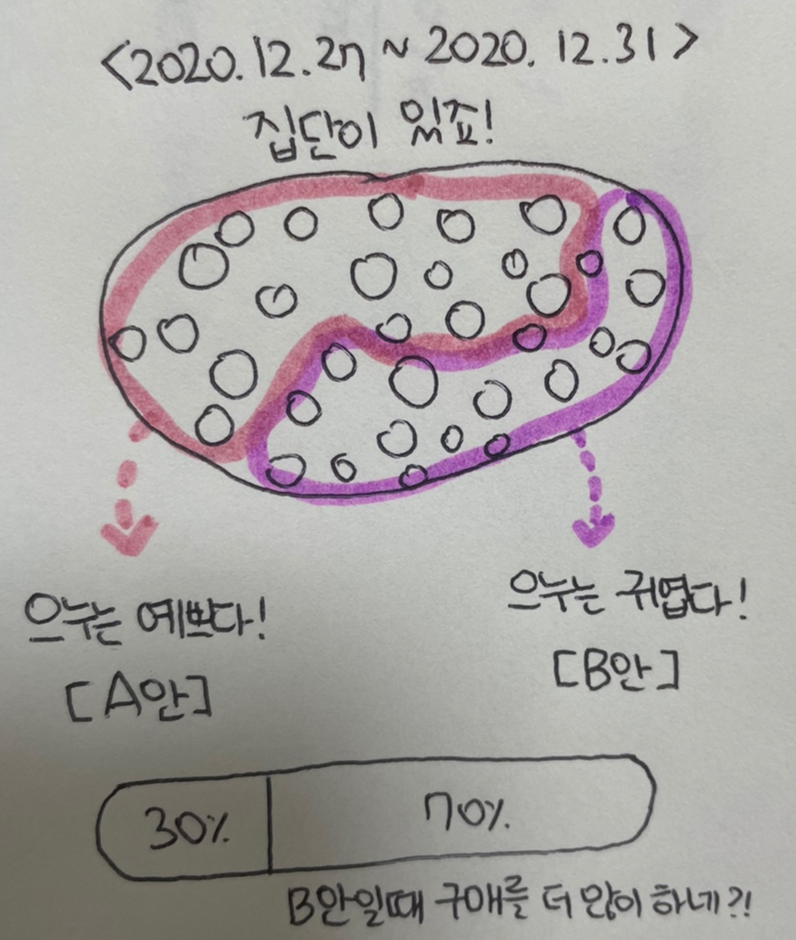 <2020.12.27 ~ 2020.12.31>
집단이 있죠!
으누는 예쁘다!
[A안]
으누는 귀엽다!
[B안]
30%
70%
B안일때 구매를 더 많이 하네?!